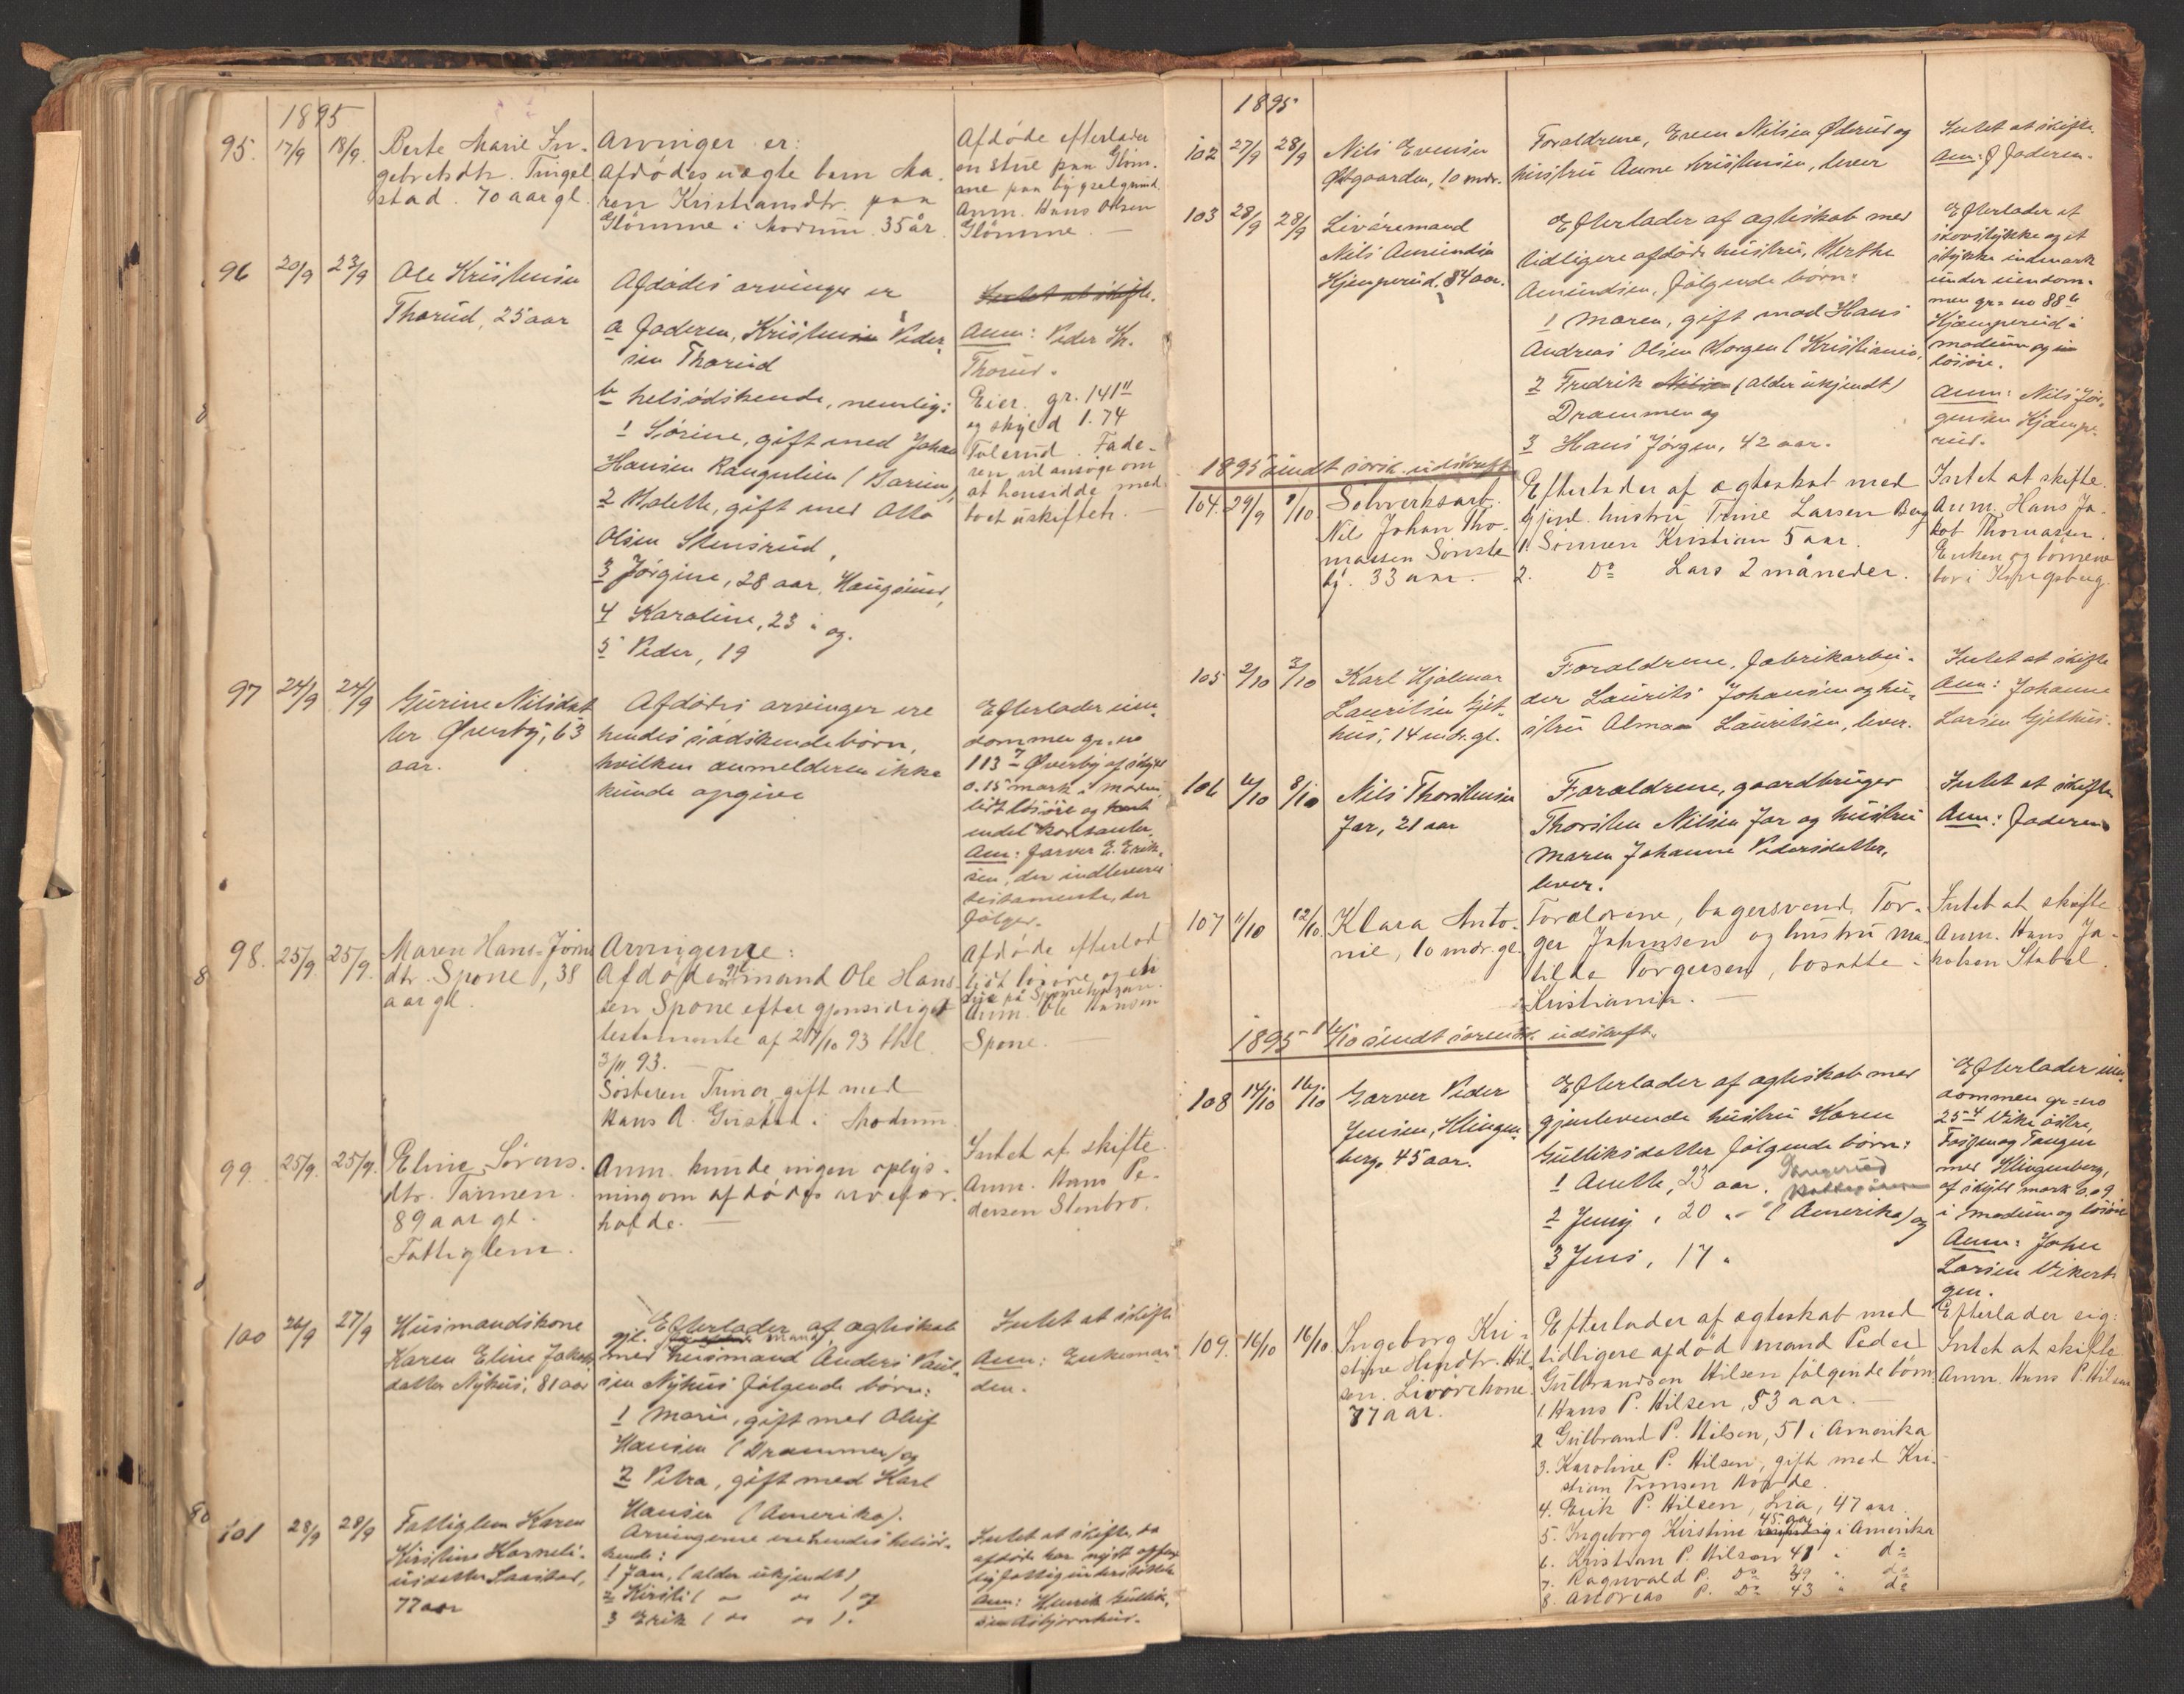 1895
95. 17/9 18/9.
Berte Marie In-
gebretsdtr. Tingel
stad. 70 aar gl.
Arvinger er:
Afdødes uægte barn Ma-
ren Kristiansdtr. paa
Glømme i Modum. 35 år
Afdøde efterlader
en stue paa Gløm-
me paa bygselgrund.
Anm. Hans Olsen
Glømme.
96 20/9 23/9
Ole Kristensen
Thorud, 25 aar
Afdødes arvinger er
a Faderen, Kristensen Peder-
sen Thorud
b helsødskende, nemlig:
1 Sørine, gift med Johan
Hansen (Bærum),
2 Malette, gift med Otto
Olsen Stensrud,
3 Jørgine, 28 aar, Haugsund,
4 Karoline, 23 " og
5 Peder, 19
Intet at skifte.
Anm: Peder Kr.
Thorud.
Eier gr. 141 11
og skyld 1.74
Tulerud. Fade-
ren vil ansøge om
at hensidde med
boet uskiftet.
97 24/9 24/9
Gurine Nilsdat
ter Øverby, 63
aar.
Afdødes arvinger ere
hendes sødskendebørn,
hvilken anmelderen ikke
kunde opgive
Efterlader eien-
dommen gr. no
113 7 Øverby af skyld
0.15 mark i Modum,
lidt løsøre og
endel kontanter.
Anm: farver E. Erik-
sen, der indleverer
testamente, der
følger.
98. 25/9. 25/9.
Maren Hans-Jørns
dtr. Spone, 38
aar gl.
Arvingerne:
Afdødes mand Ole Hans-
sen Spone efter gjensidiget
testamente af 27/10 93 thl.
3/11 93.
Søsteren Trine, gift med
Hans A. i Modum.
Afdøde efterlod
lidt løsøre og et
hus på Sponehagan.
Anm. Ole Hansen
Spone.
99. 25/9. 25/9.
Eline Sørens-
dtr. Tormen.
89 aar gl.
Fattiglem.
Anm. kunde ingen oplys-
ning om afdødes arvefor-
holde.
Intet at skifte.
Anm. Hans Pe-
dersen Stenbro.
100 26/9 27/9
Husmandskone
Karen Eline Jakobs
datter Nyhus, 81 aar
Efterlader af ægteskab
med husmand Anders Paul-
sen Nyhus følgende børn:
1 Marie, gift med Oluf
Hansen (Drammen) og
2 Petra, gift med Karl
Hansen (Amerika).
Intet at skifte
Anm: Enkeman-
den.
101 28/9 28/9
Fattiglem Karen
Kirstine Korneli-
usdatter Saastad,
77 aar
Arvingerne ere hendes helsød-
kende:
1 Jan, (alder ukjendt)
2 Kirsti ( " " ) og
3 Erik ( " " ).
Intet at skifte, da
afdøde har nydt offent
lig fattigunderstøttelse
Anm: Henrik Gullik-
sen Asbjørnhus.
1895
102 27/9 28/9
Nils Evensen
Østgaarden, 10 mdr.
Forældrene, Even Nilsen Øderud og
hustru Anne Kristensen, lever
Intet at skifte.
Anm: Faderen.
103 28/9 28/9
Livøremand
Nils Amundsen
Kjemperud, 84 aar.
Efterlader af ægteskab med
tidligere afdøde hustru, Berthe
Amundsen, følgende børn:
1 Maren, gift med Hans
Andreas Olsen Borgen (Kristiania,
2 Fredrik Nilsen (alder ukjendt)
Drammen og
3 Hans Jørgen, 42 aar.
Efterlader et
skovstykke og et
stykke indmark
under eiendom-
men gr=no 88 6
Kjæmperud i
Modum og
løsøre.
Anm: Nils Jør-
gensen Kjæmpe-
rud.
1895 sendt sorsk. udskrift
104. 29/9 1/10.
Sølvverksarb.
Nils Johan Tho-
massen Sønste
by. 33 aar.
Efterlader af ægteskab med
gjenl. hustru Trine Larsen Berg
1. Sønnen Kristian 5 aar.
2. Do Lars 2 måneder.
Intet at skifte.
Anm. Hans Ja-
kob Thomassen.
Enken og børnene
bor i Kongsberg.
105 2/10 3/10
Karl Hjalmar
Lauritsen Gjet-
hus, 14 mdr. gl.
Forældrene, fabrikarbei-
der Laurits Johansen og hu-
stru Alma Lauritsen, lever.
Intet at skifte
Anm: Johanne
Larsen Gjethus.
106 6/10 8/10
Nils Thorstensen
Jar, 21 aar
Forældrene, gaardbruger
Thorsten Nilsen Jar og hustru
Maren Johanne Pedersdatter,
lever.
Intet at skifte
Anm: Faderen
107 11/10 12/10.
Klara Anto-
nie, 10 mdr. gl.
Forældrene, bagersvend Tor-
ger Johnsen og hustru Ma-
tilde Torgersen, bosatte i
Kristiania.
Intet at skifte
Anm. Hans Ja-
kobsen Stabel.
1895 16/10 sendt sorensk. udskrift.
108 14/10 16/10
Garver Peder
Jensen, Klingen-
berg, 45 aar.
Efterlader af ægteskab med
gjenlevende hustru Karen
Gulliksdatter følgende børn:
1 Anette, 23 aar,
2 Jenny, 20 " (Amerika) og
3 Jens, 17 "
Efterlader eien-
dommen gr=no
25 4 Vike østre,
Fossen og Tangen
med Klingenberg,
af skyld mark 0.09
i Modum og løsøre
Anm: Johan
Larsen Vikert-
gen.
109. 16/10 16/10.
Ingeborg Kri-
stine Hendtr. Hil-
sen. Livørekone
77 aar.
Efterlader af ægteskab med
tidligere afdød mand Peder
Gulbrandsen Hilsen følgende børn:
1. Hans P. Hilsen, 53 aar.
2 Gulbrand P. Hilsen, 51 i Amerika
3. Karoline P. Hilsen, gift med Kri-
stian Tronsen
4. Erik P. Hilsen, Lia, 47 aar.
45 aar
5. Ingeborg Kirstine i Amerika
6. Kristian P. Hilsen 41 i do
7. Ragnvald P. Do 39 " do
8. Andreas P. Do 43 " do
Efterlader sig:
Intet at skifte
Anm. Hans P. Hilsen